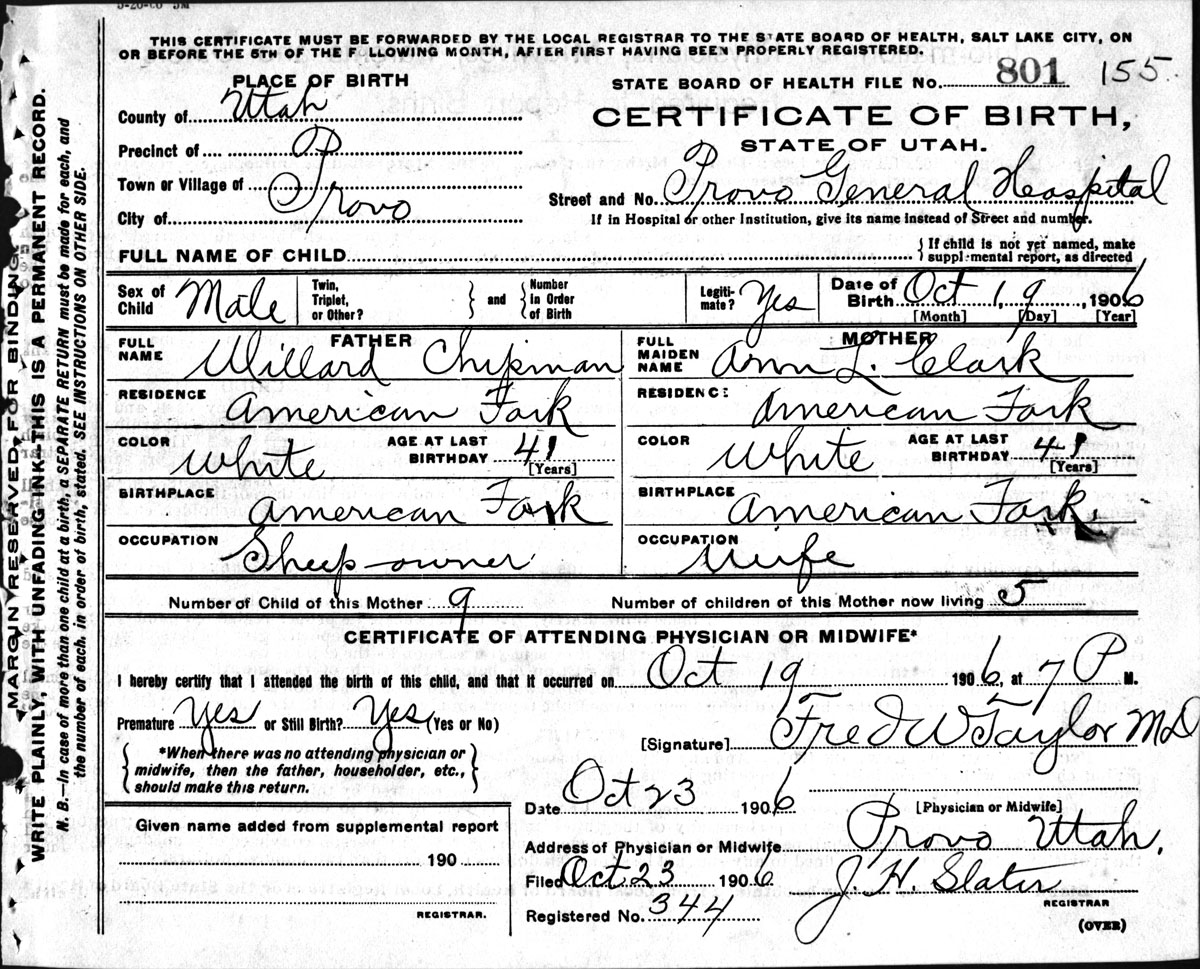 THIS CERTIFICATE MUST BE FORWARDED BY THE LOCAL REGISTRAR TO THE STATE BOARD OF HEALTH, SALT LAKE CITY, ON
OR BEFORE THE 5TH OF THE F LLOWING MONTH, AFTER FIRST HAVING BEEN PROPERLY REGISTERED.
PLACE OF BIRTH
STATE BOARD OF HEALTH FILE No. 801 155
County of Utah
CERTIFICATE OF BIRTH,
Precinct of
STATE OF UTAH.
Town or Village of Provo
Street and No. Provo General Hospital
City of
If in Hospital or other Institution, give its name instead of Street and number.
FULL NAME OF CHILD
{ If child is not yet named, make
supplemental report, as directed
Sex of Child Male
Twin, Triplet, or Other? } and { Number in Order of Birth
Legiti-mate? Yes
Date of Birth Oct 19, 1906
[Month] [Day] [Year]
FATHER
FULL NAME Willard Chipman
MOTHER
FULL MAIDEN NAME Ann L. Clark
RESIDENCE American Fork
RESIDENC: American Fork
COLOR White AGE AT LAST BIRTHDAY 41 [Years]
COLOR White AGE AT LAST BIRTHDAY 41 [Years]
BIRTHPLACE American Fork
BIRTHPLACE American Fork.
OCCUPATION Sheep-owner
OCCUPATION Wife
Number of Child of this Mother 9
Number of children of this Mother now living 5
CERTIFICATE OF ATTENDING PHYSICIAN OR MIDWIFE*
I hereby certify that I attended the birth of this child, and that it occurred on Oct 19 1906, at 7 P M.
Premature Yes or Still Birth? Yes (Yes or No)
[Signature] Fred W Taylor MD
{ *When there was no attending physician or
midwife, then the father, householder, etc.,
should make this return. }
Date Oct 23 1906
[Physician or Midwife]
Given name added from supplemental report
Address of Physician or Midwife Provo Utah.
190
Filed Oct 23 1906 J. H. Slater
REGISTRAR.
REGISTRAR
Registered No. 344
(OVER)
MARGIN RESERVED FOR BINDING.
WRITE PLAINLY, WITH UNFADING INK—THIS IS A PERMANENT RECORD.
N. B.—In case of more than one child at a birth, a SEPARATE RETURN must be made for each, and
the number of each, in order of birth, stated. SEE INSTRUCTIONS ON OTHER SIDE.